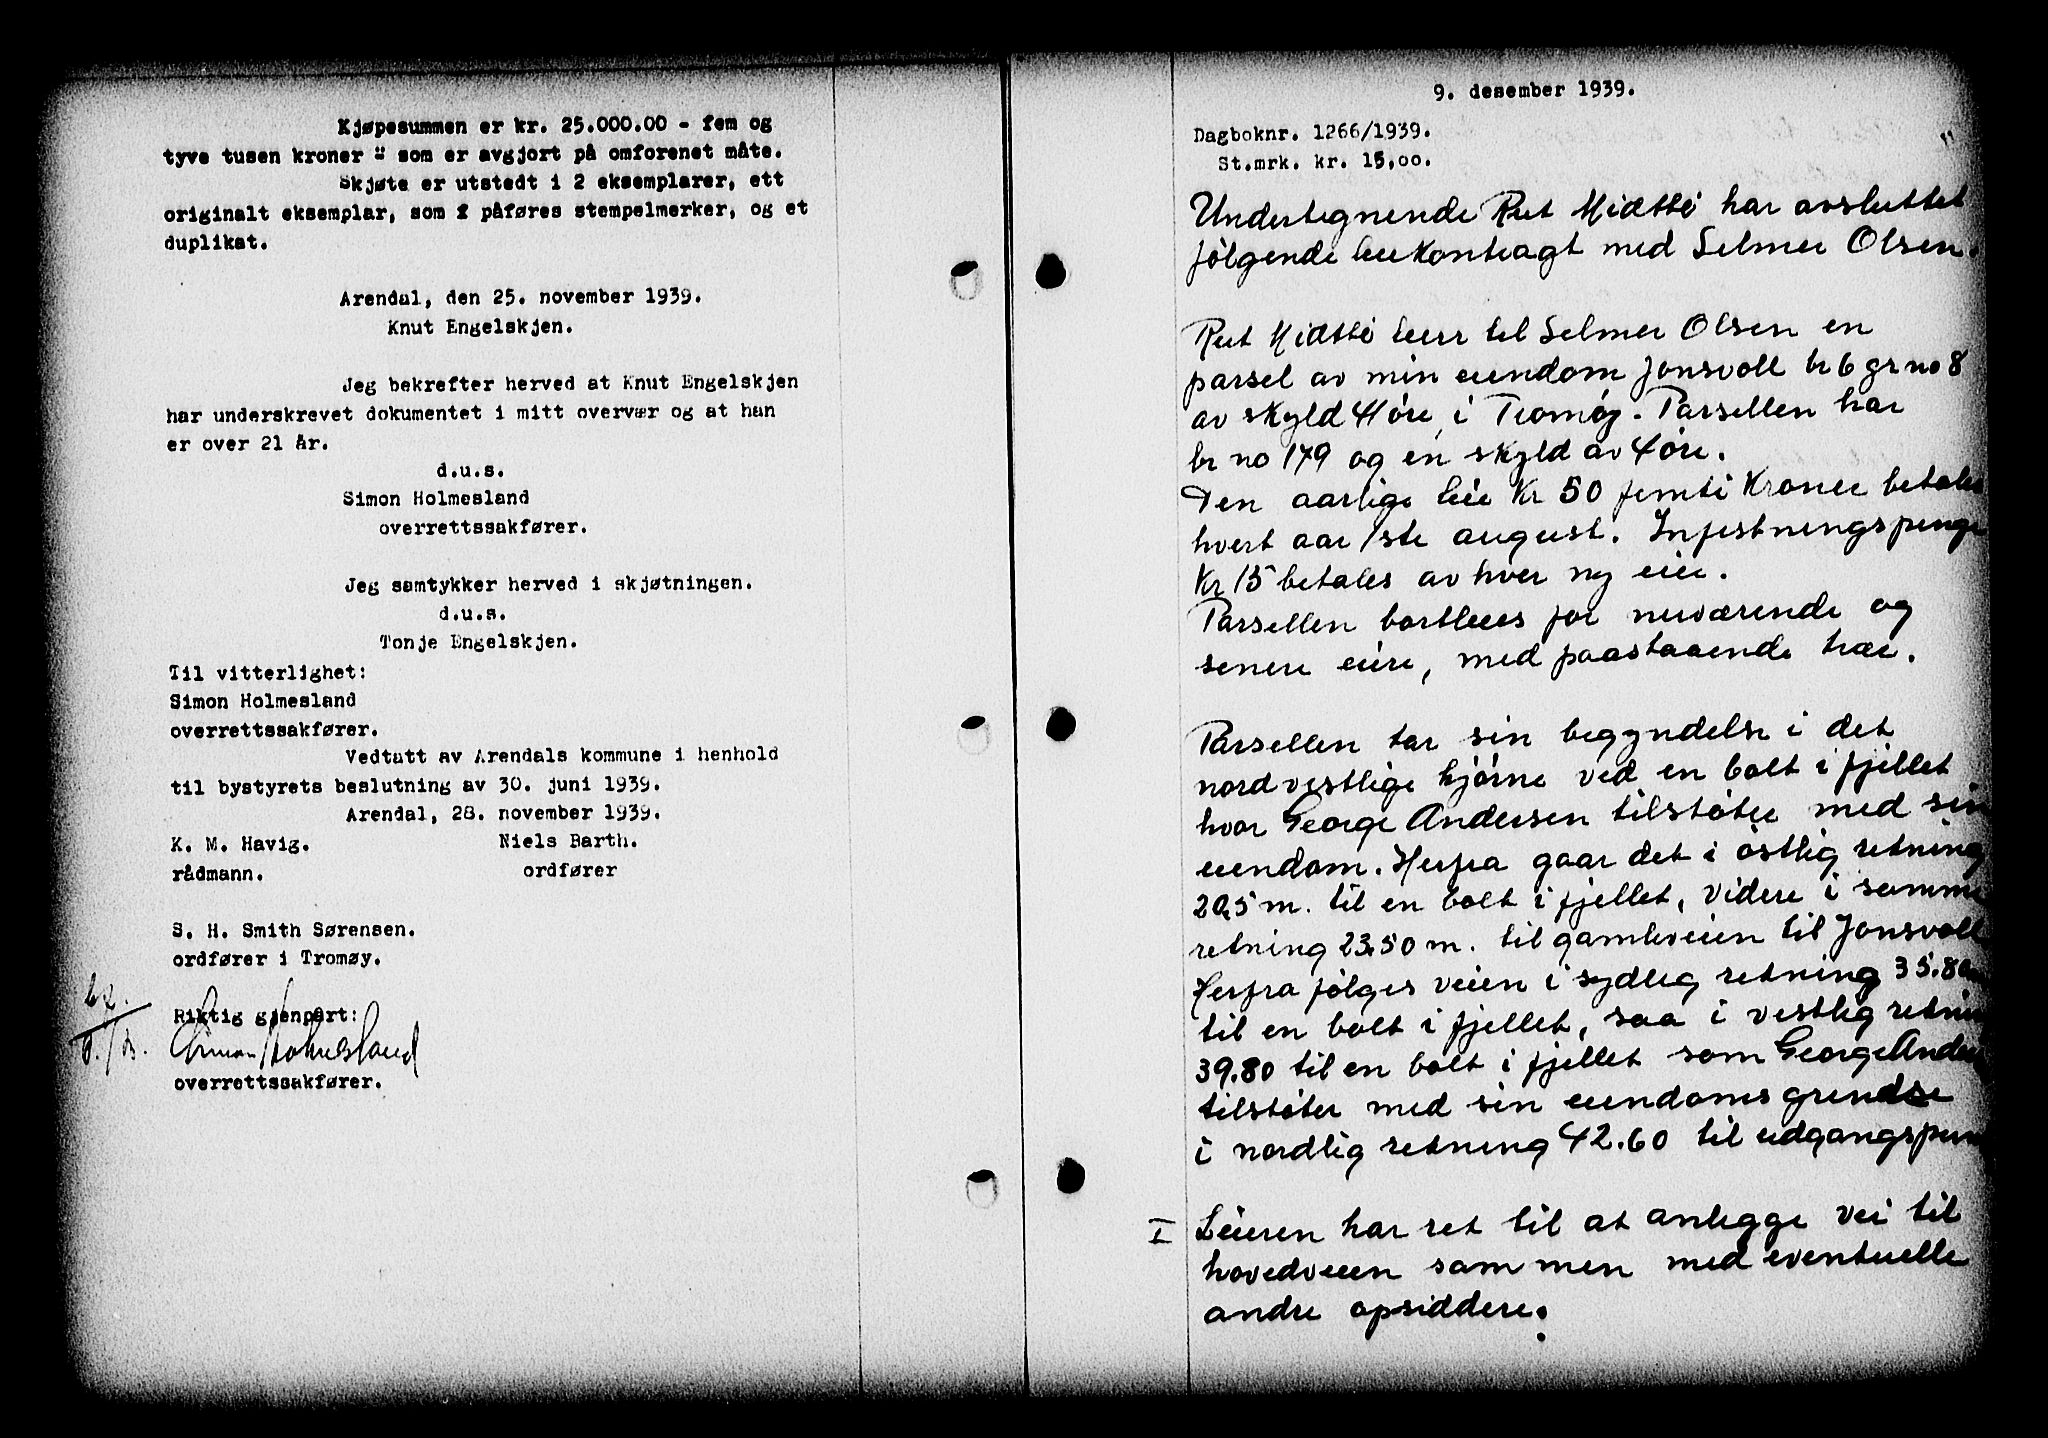 Kjøpesummen er kr. 25.000.00 - fem og
tyve tusen kroner - som er avgjort på omforenet måte.
Skjøte er utstedt i 2 eksemplarer, ett
originalt eksemplar, som påføres stempelmerker, og et
duplikat.
Arendal, den 25. november 1939.
Knut Engelskjen.
Jeg bekrefter herved at Knut Engelskjen
har underskrevet dokumentet i mitt overvær og at han
er over 21 år.
d.u.s.
Simon Holmesland
overrettssakfører.
Jeg samtykker herved i skjøtningen.
d.u.s.
Tonje Engelskjen.
Til vitterlighet:
Simon Holmesland
overrettssakfører.
Vedtatt av Arendals kommune i henhold
til bystyrets beslutning av 30. juni 1939.
Arendal, 28. november 1939.
K. M. Havig. Niels Barth.
rådmann. ordfører
S. H. Smith Sørensen.
ordfører i Tromøy.
Riktig gjenpart:
Simon Holmesland
overrettssakfører.
9. desember 1939.
Dagboknr. 1266/1939.
St.mrk. kr. 15,00.
Undertegnende Rut Midtbö har avsluttet
følgende leiekontragt med Selmer Olsen.
Rut Midtbö leier til Selmer Olsen en
parsel av min eiendom Jonsvoll br 6 gr no 8
av skyld 41 øre, i Tromøy. Parsellen har
br no 179 og en skyld av 4 øre.
Den aarlige leie Kr 50 femti Kroner betales
hvert aar 1ste august. Infestningspenge
Kr 15 betales av hver ny eier.
Parsellen bortleies for nuværende og
senere eiere, med paastaaende hus.
Parsellen tar sin begyndelse i det
nordvestlige hjørne ved en bolt i fjellet
hvor George Andersen tilstøter med sin
eiendom. Herfra gaar det i østlig retning
20,5 m. til en bolt i fjellet, videre i samme
retning 23.50 m. til gamleveien til Jonsvoll
Herfra følges veien i sydlig retning 35.80 m
til en bolt i fjellet, saa i vestlig retnin
39.80 til en bolt i fjellet som George Anders
tilstøter med sin eiendoms grendse
i nordlig retning 42.60 til udgangspun
I Leieren har ret til at anlegge vei til
hovedveien sammen med eventuelle
andre opsiddere.